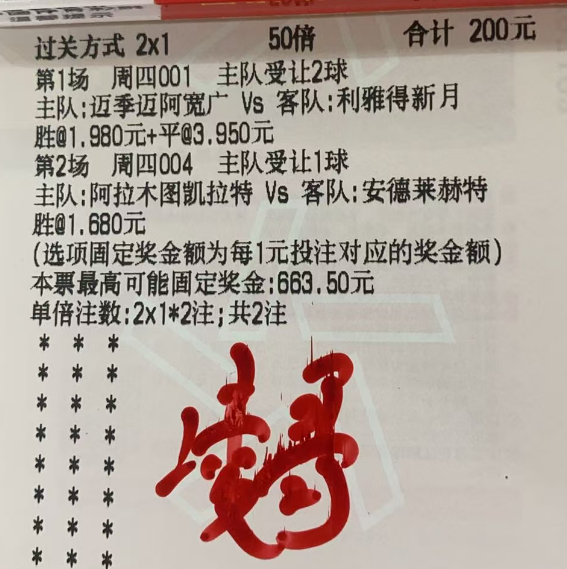 过关方式 2x1 50倍 合计 200元
第1场 周四001 主队受让2球
主队:迈季迈阿宽广 Vs 客队:利雅得新月
胜@1.980元+平@3.950元
第2场 周四004 主队受让1球
主队:阿拉木图凯拉特 Vs 客队:安德莱赫特
胜@1.680元
(选项固定奖金额为每1元投注对应的奖金额)
本票最高可能固定奖金:663.50元
单倍注数:2x1*2注;共2注
* * *
* * *
* * *
* * *
* * *
* * *
* * *
* * *